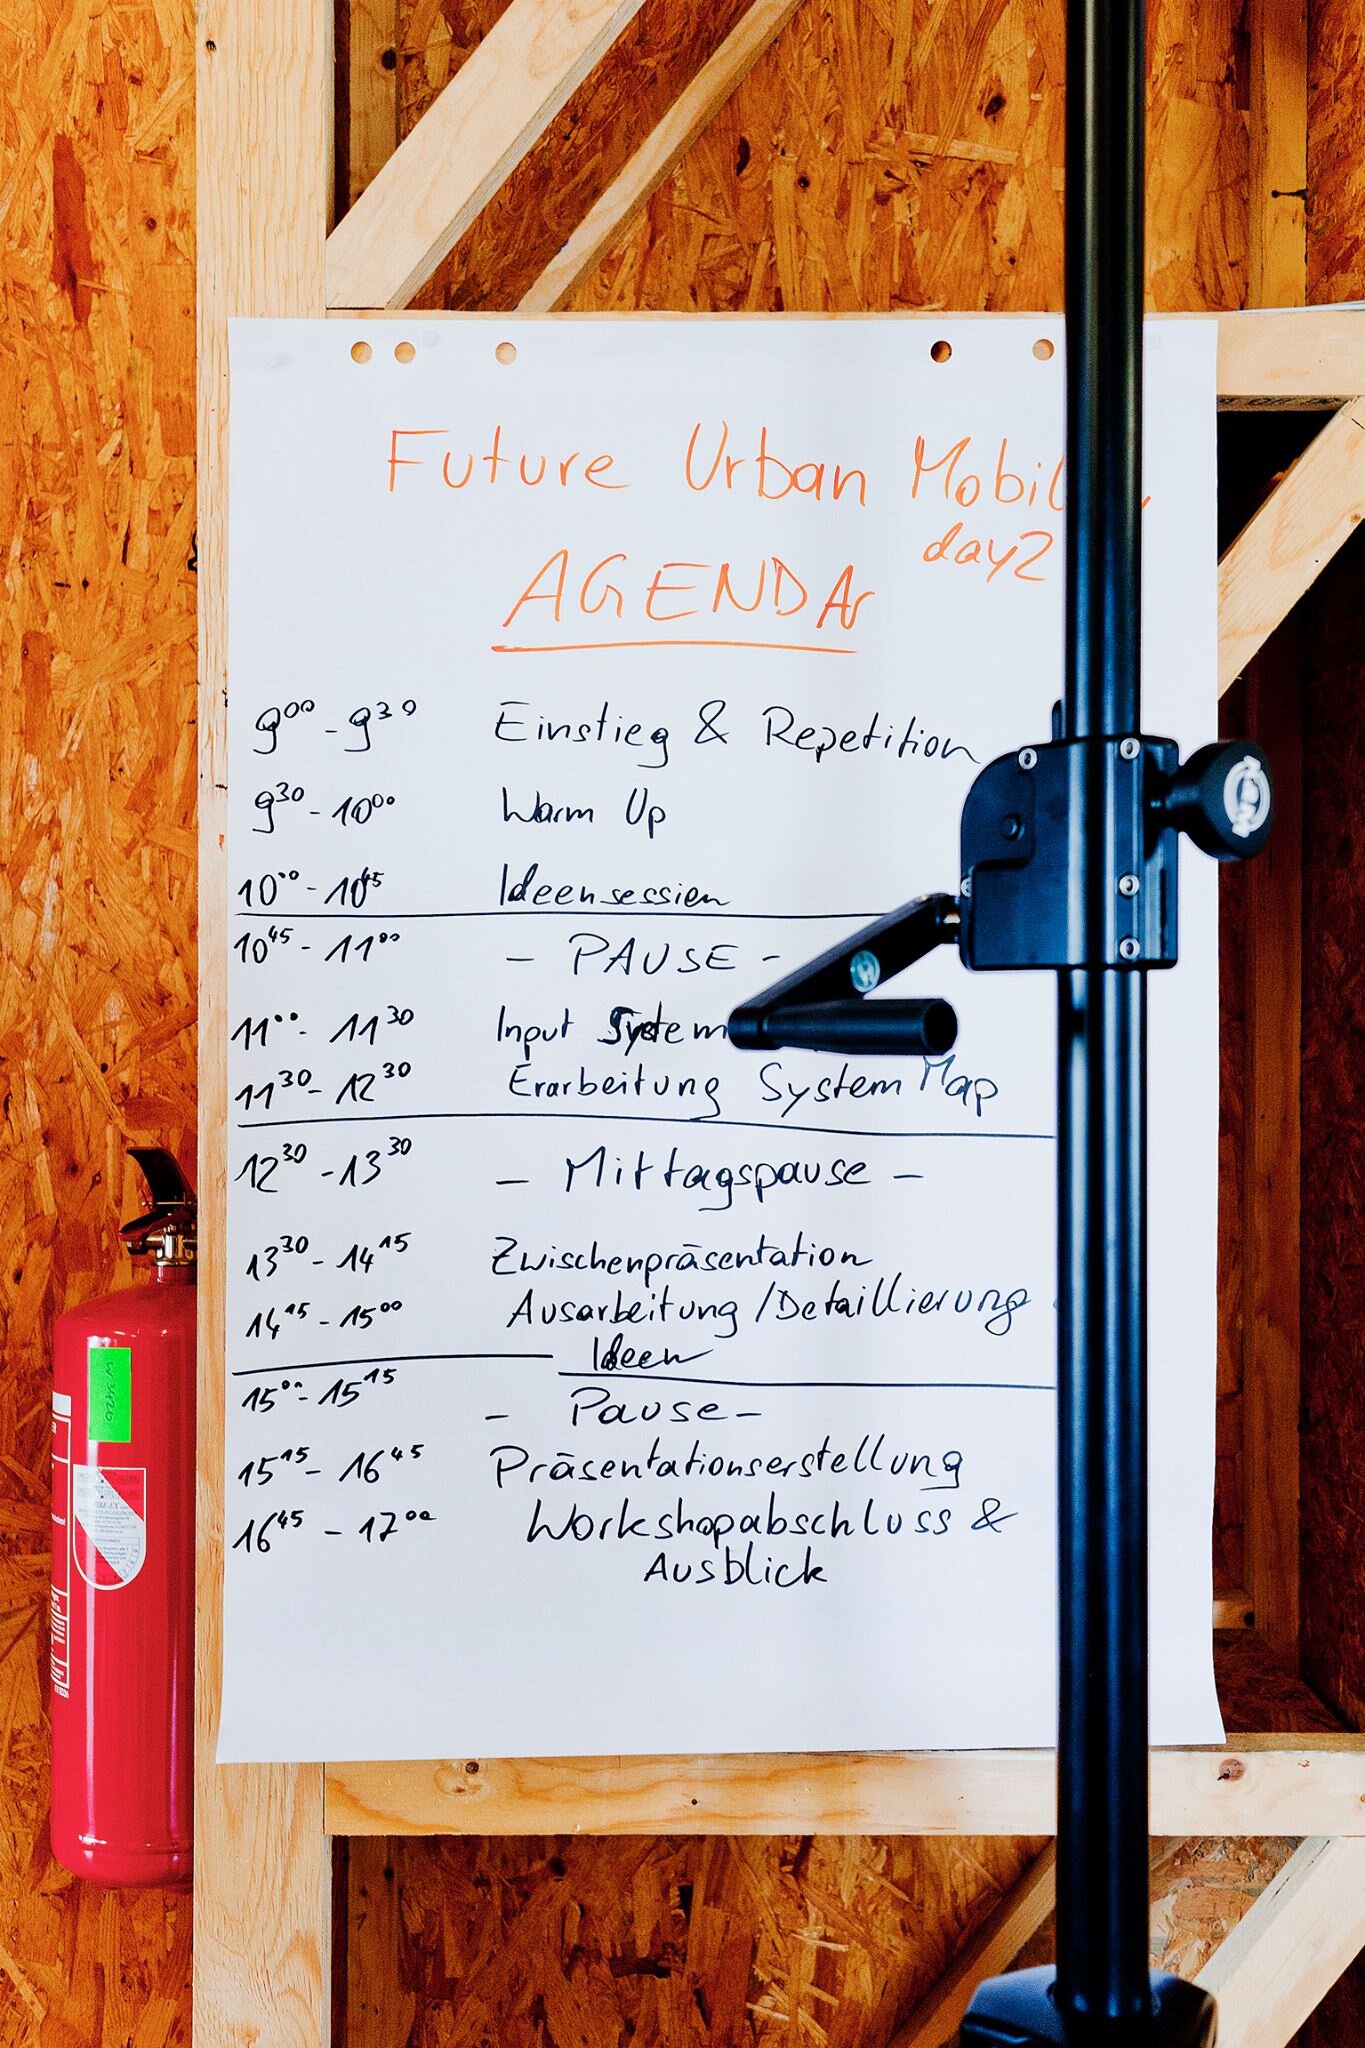 Future Urban
day2
AGENDA
9⁰⁰ - 9³⁰ Einstieg & Repetition
9³⁰ - 10⁰⁰ Warm Up
10⁰⁰ - 10⁴⁵ Ideensession
10⁴⁵ - 11⁰⁰ - PAUSE -
11⁰⁰ - 11³⁰ Input System
11³⁰ - 12³⁰ Erarbeitung System Map
12³⁰ - 13³⁰ - Mittagspause -
13³⁰ - 14¹⁵ Zwischenpräsentation
14¹⁵ - 15⁰⁰ Ausarbeitung / Detaillierung
Ideen
15⁰⁰ - 15¹⁵ - Pause -
15¹⁵ - 16⁴⁵ Präsentationserstellung
16⁴⁵ - 17⁰⁰ Workshopabschluss &
Ausblick